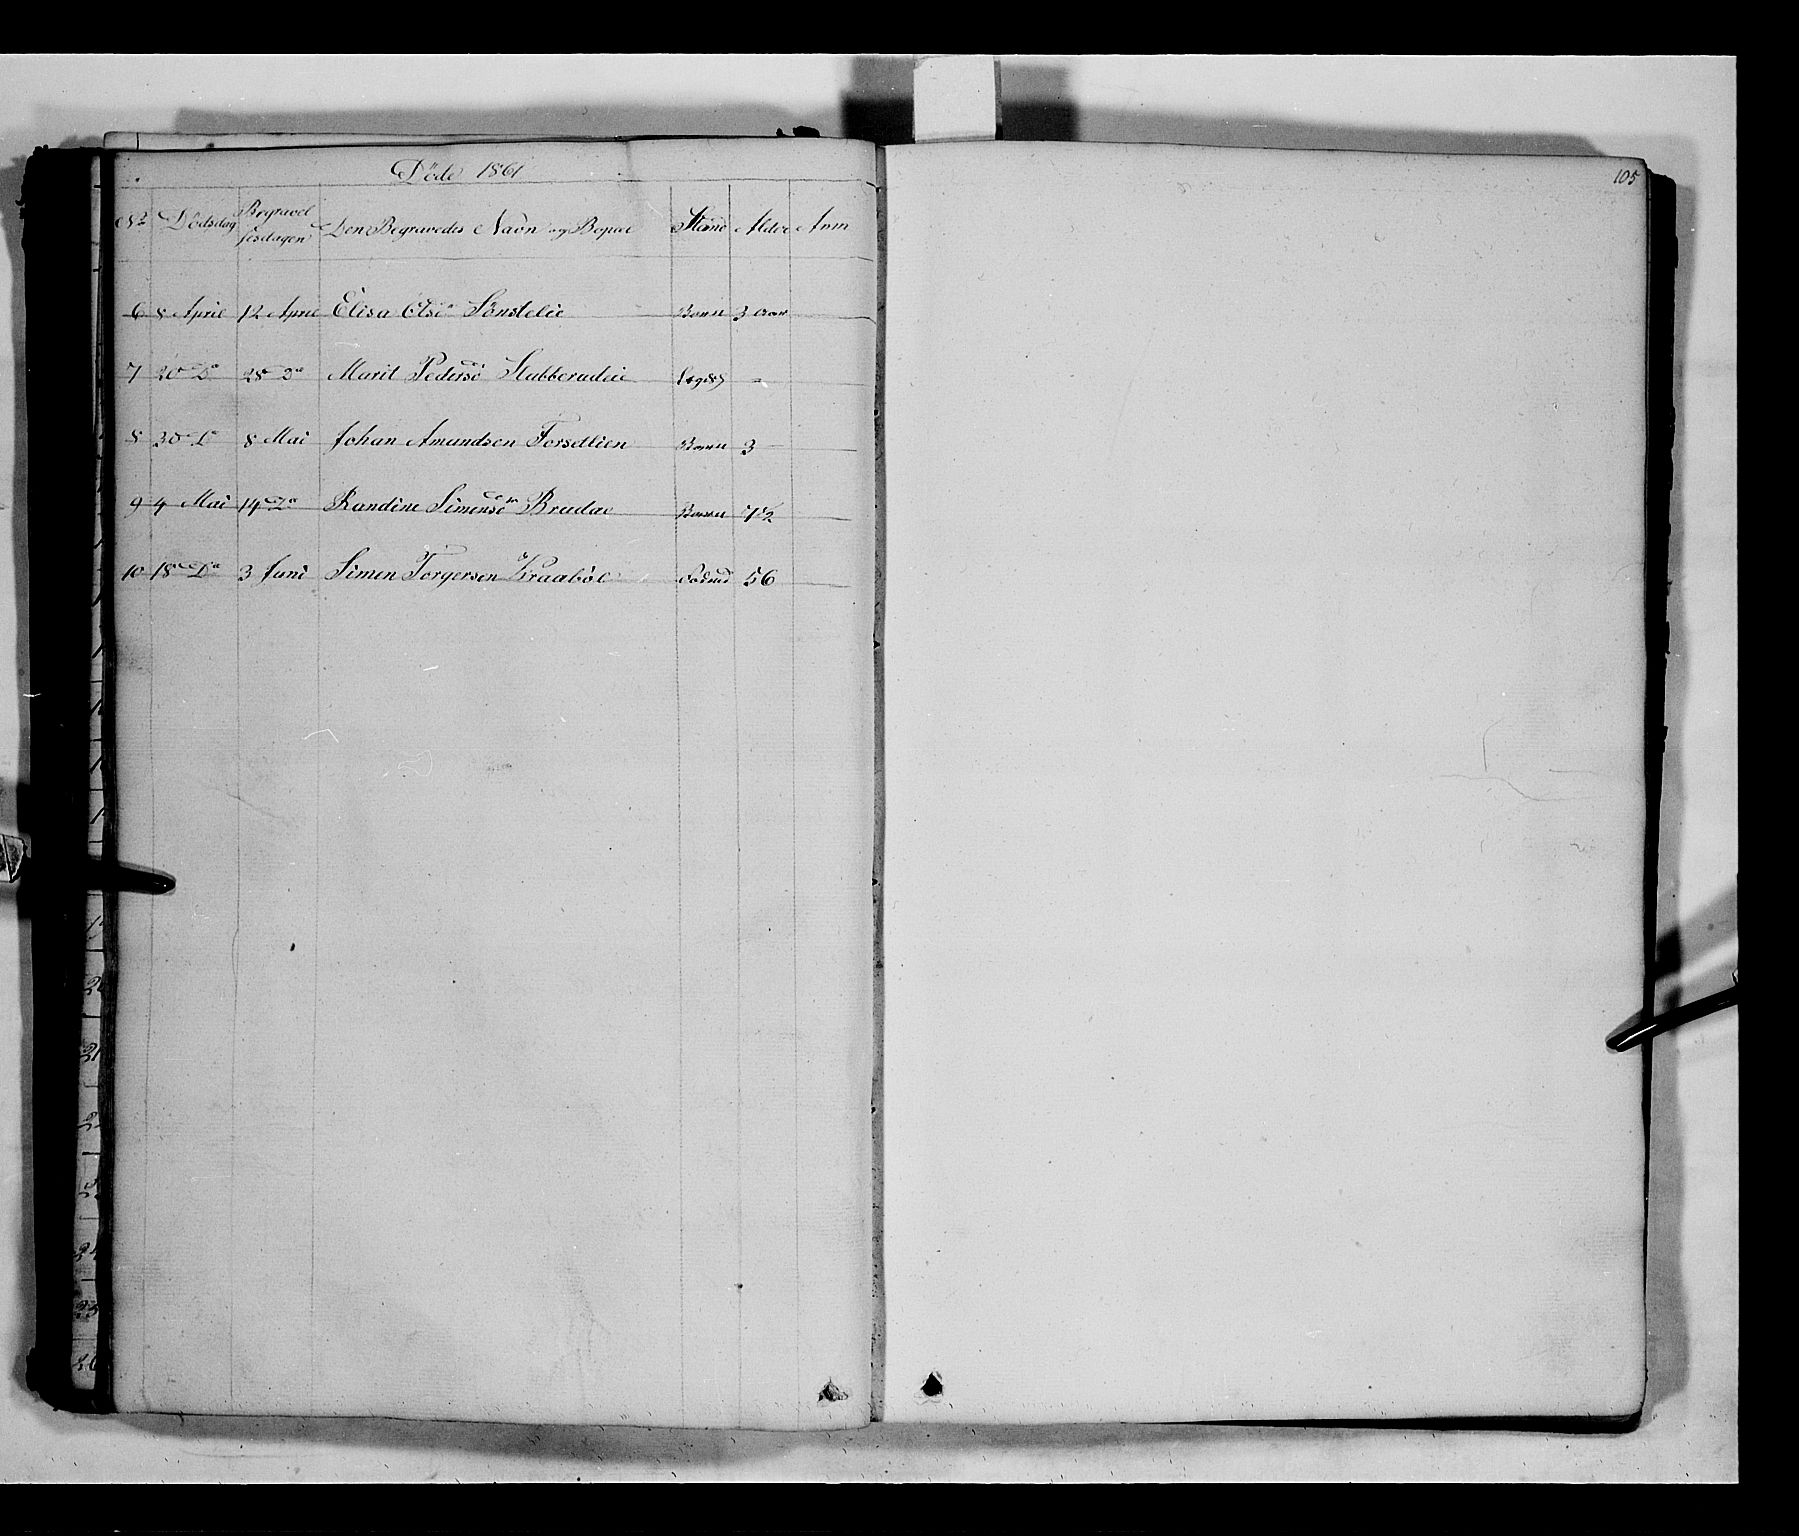 Döde 1861
105
No Dödsdag Begravelsesdagen Den Begravedes Navn og Bopæl Stand Alder Anm
6 8 April 12 April Elisa Olsd Sönstelie Barn 3 aar
7 20 Do 28 Do Marit Pedersd Stubberudeie Lægds =
8 30 Do 8 Mai Johan Amundsen Forsetlien Barn 3
9 4 Mai 14 Do Randine Simensd Barn 7½
10 18 Do 3 Juni Simen Torgersen Kraaböl 56